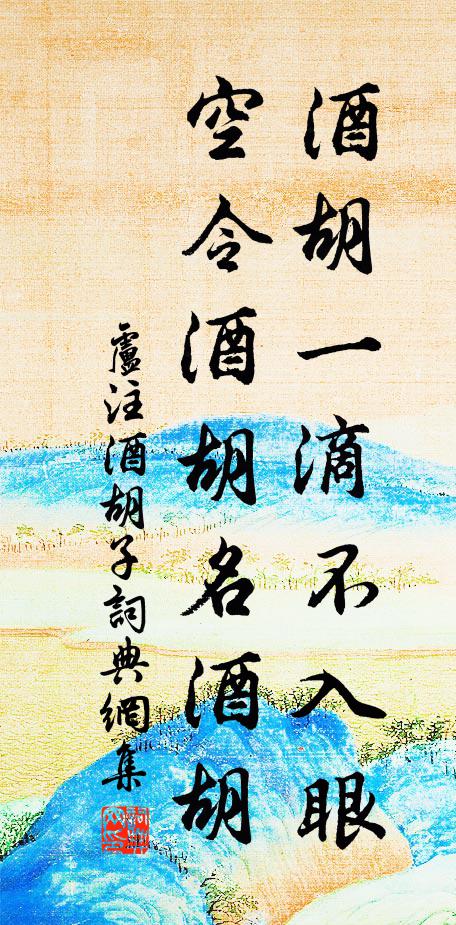 酒胡一滴不入眼
空令酒胡名酒胡
盧注酒胡子詞典網集